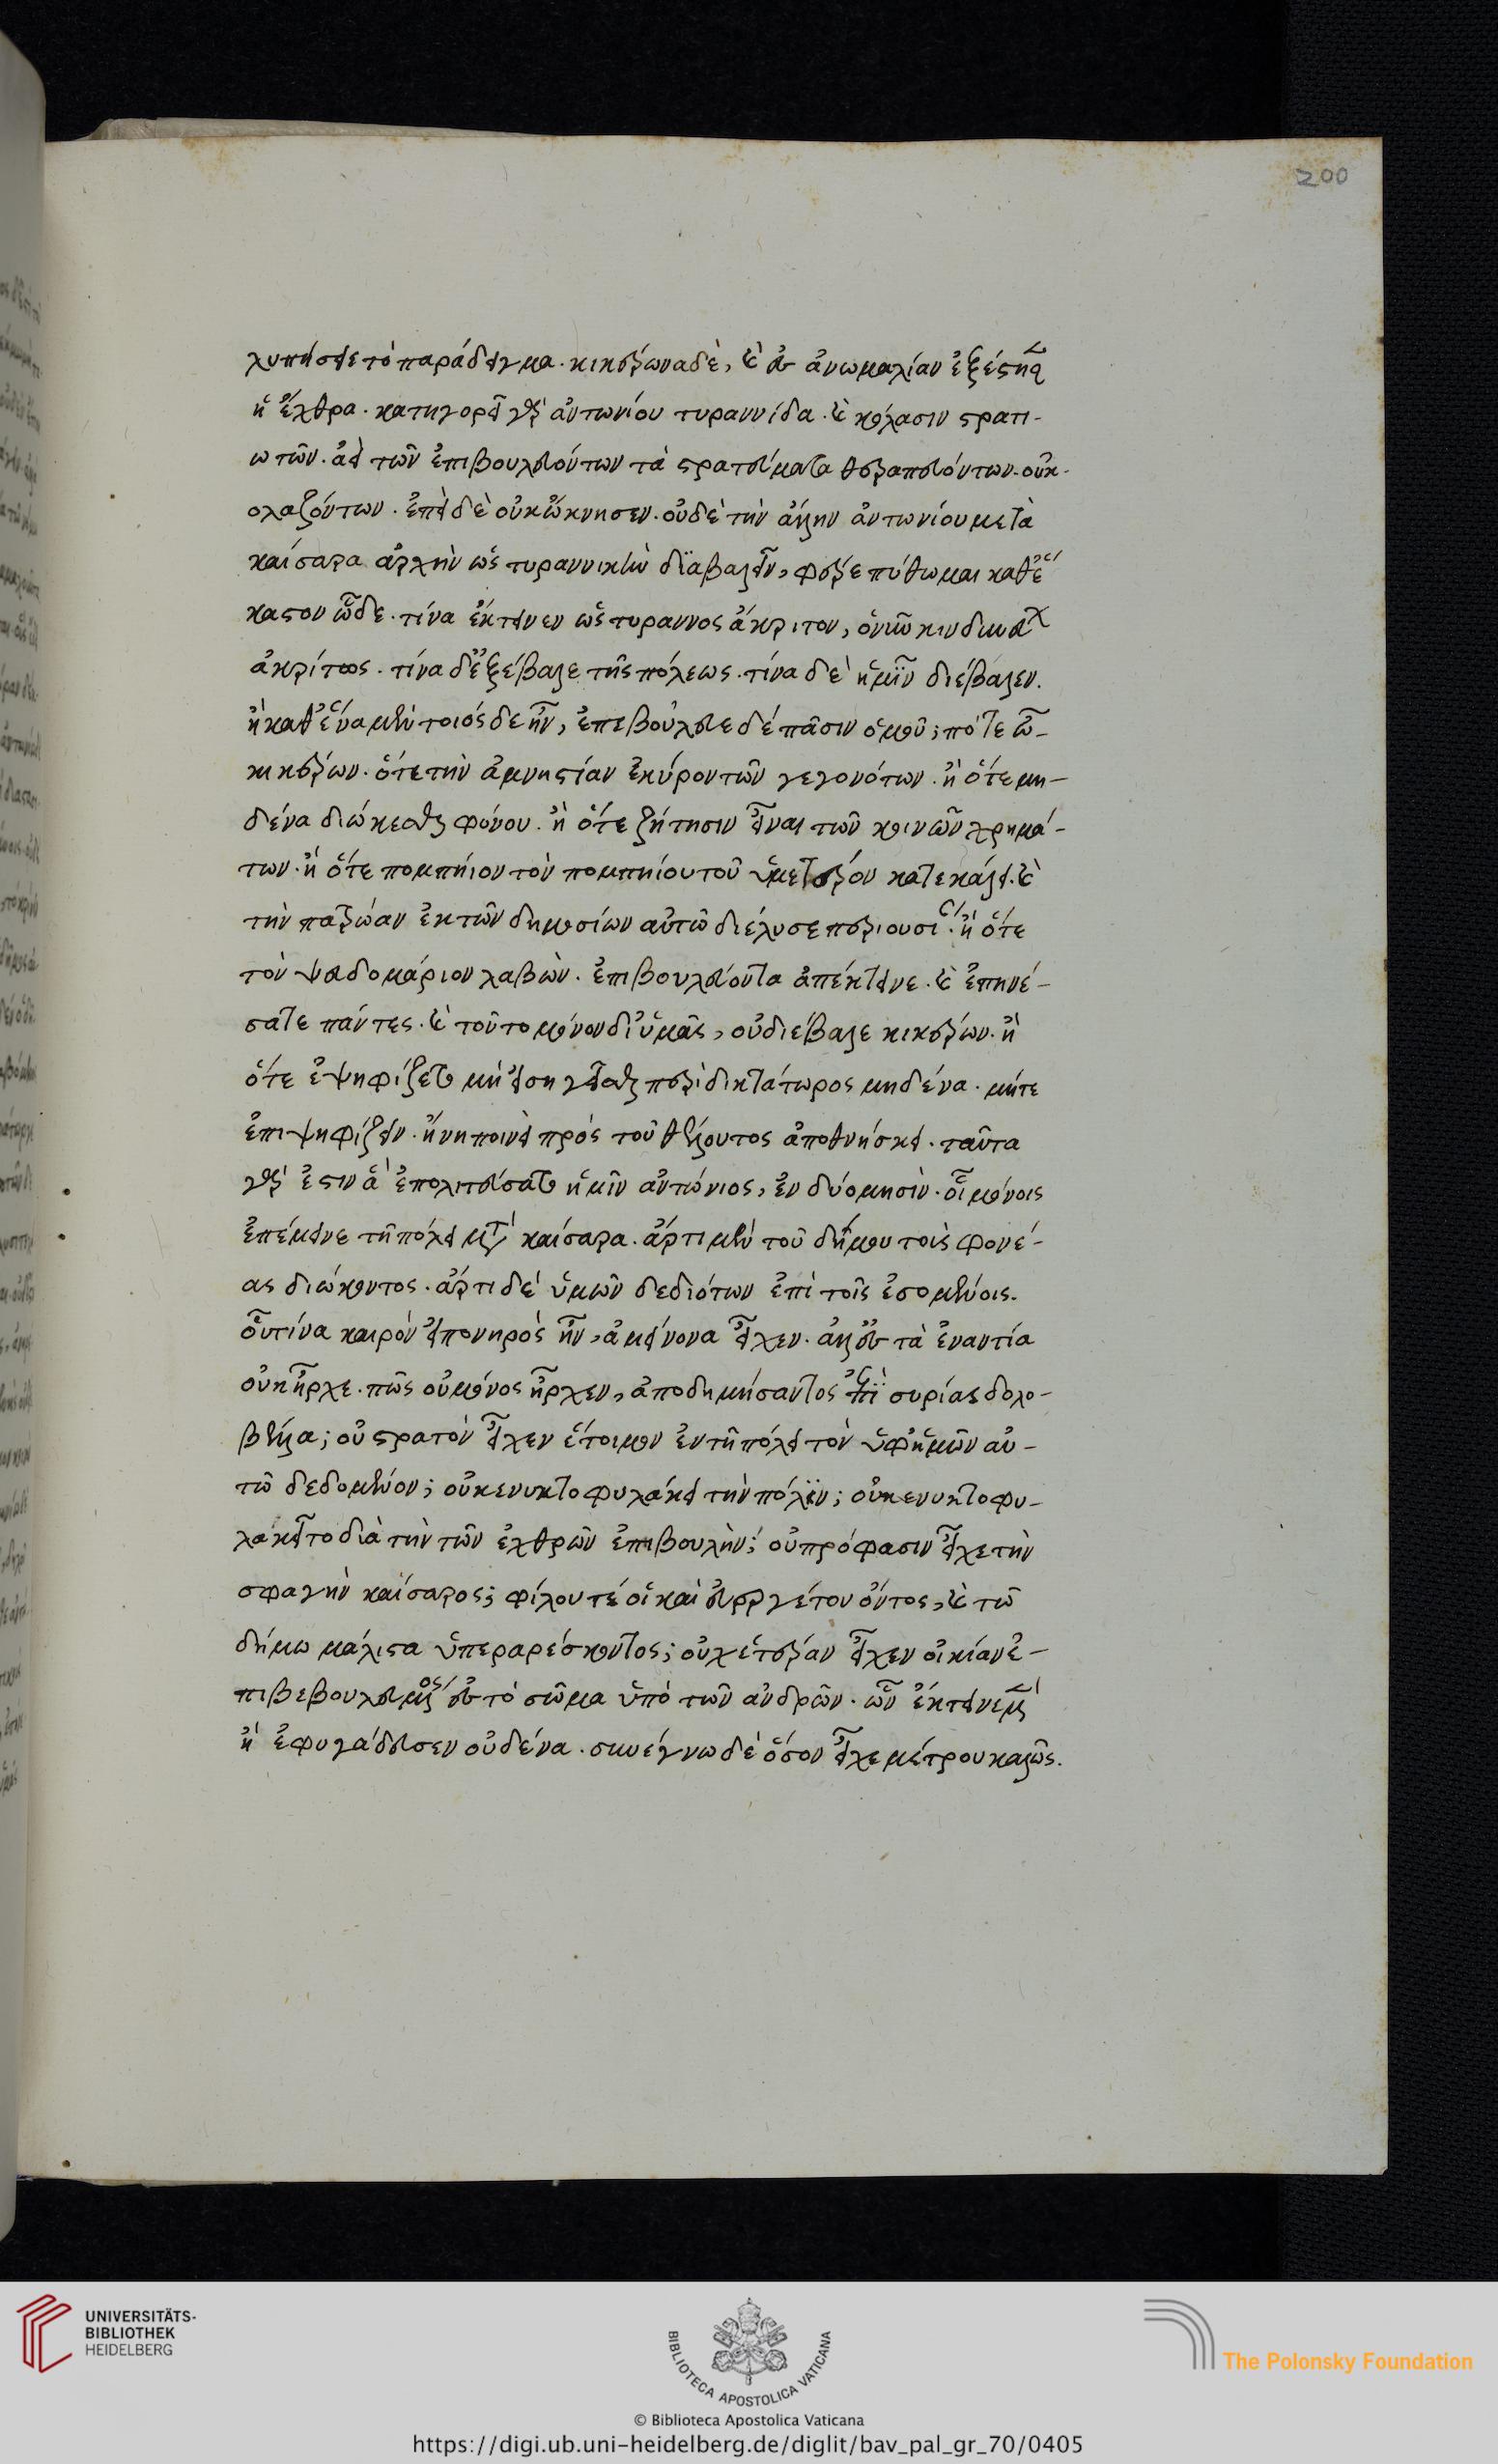 200
λυπήσειε τὸ παράδειγμα. κικέρωνα δὲ, καὶ εἰς ἀνωμαλίαν ἐξέστησεν
ἡ ἔχθρα. κατηγορεῖ γὰρ ἀντωνίου τυραννίδα. καὶ κόλασιν στρατι-
ωτῶν. ἀεὶ τῶν ἐπιβουλευόντων τὰ στρατεύματα θεραπευόντων. οὐ κ-
ολαζόντων. ἐπεὶ δὲ οὐκ ὤκνησεν. οὐδὲ τὴν ἄλλην ἀντωνίου μετὰ
καίσαρα ἀρχὴν ὡς τυραννικὴν διαβαλεῖν, φέρε πύθωμαι καθ' ἕ
καστον ὧδε. τίνα ἔκτεινεν ὡς τύραννος ἄκριτον, ὁ νῦν κινδυνεύων
ἀκρίτως. τίνα δ' ἐξέβαλε τῆς πόλεως. τίνα δὲ ἡμῖν διέβαλεν.
ἢ καθ' ἕνα μὲν τοιόσδε ἦν, ἐπεβούλευε δὲ πᾶσιν ὁμοῦ; πότε ὦ
κικέρων. ὅτε τὴν ἀμνηστίαν ἐκύρου τῶν γεγονότων. ἢ ὅτε μη-
δένα διώκεσθαι φόνου. ἢ ὅτε ζήτησιν εἶναι τῶν κοινῶν χρημά-
των. ἢ ὅτε πομπήιον τὸν πομπηίου τοῦ ὑμετέρου κατεκάλει. καὶ
τὴν πατρῴαν ἐκ τῶν δημοσίων αὐτῷ διέλυσε περιουσίαν. ἢ ὅτε
τὸν ψευδομάριον λαβὼν. ἐπιβουλεύοντα ἀπέκτεινε. καὶ ἐπῃνέ-
σατε πάντες. καὶ τοῦτο μόνον δι' ὑμᾶς, οὐ διέβαλε κικέρων. ἢ
ὅτε ἐψηφίζετο μὴ εἰσηγεῖσθαι περὶ δικτάτωρος μηδένα. μήτε
ἐπιψηφίζειν. ἢ νηποινεὶ πρὸς τοῦ θέλοντος ἀποθνήσκειν. ταῦτα
γὰρ ἐστιν ἃ ἐπολιτεύσατο ἡμῖν ἀντώνιος, ἐν δύο μησὶν. οἷς μόνοις
ἐπέμεινε τῇ πόλει μετὰ καίσαρα. ἄρτι μὲν τοῦ δήμου τοὺς φονέ-
ας διώκοντος. ἄρτι δὲ ὑμῶν δεδιότων ἐπὶ τοῖς ἐσομένοις.
οὗ τίνα καιρὸν εἰ πονηρὸς ἦν, ἀμείνονα εἶχεν. ἀλλ' ἐς τὰ ἐναντία
οὐκ ἦρχε. πῶς οὐ μόνος ἦρχεν, ἀποδημήσαντος ἐπὶ συρίας δολο-
βέλλα; οὐ στρατὸν εἶχεν ἕτοιμον ἐν τῇ πόλει τὸν ὑφ' ἡμῶν αὐ-
τῷ δεδομένον; οὐκ ἐνυκτοφυλάκει τὴν πόλιν; οὐκ ἐνυκτοφυ-
λακεῖτο διὰ τὴν τῶν ἐχθρῶν ἐπιβουλὴν; οὐ πρόφασιν εἶχε τὴν
σφαγὴν καίσαρος; φίλου τέ οἱ καὶ εὐεργέτου ὄντος, καὶ τῷ
δήμῳ μάλιστα ὑπεραρέσκοντος; οὐχ ἑτέραν εἶχεν οἰκίαν ἐ-
πιβεβουλευμένος ἐς τὸ σῶμα ὑπὸ τῶν ἀνδρῶν. ὧν ἔκτεινε μὲν
ἢ ἐφυγάδευσεν οὐδένα. συνέγνω δὲ ὅσον εἶχε μέτρου καλῶς.
UNIVERSITÄTS-
BIBLIOTHEK
HEIDELBERG
BIBLIOTECA APOSTOLICA VATICANA
The Polonsky Foundation
© Biblioteca Apostolica Vaticana
https://digi.ub.uni-heidelberg.de/diglit/bav_pal_gr_70/0405